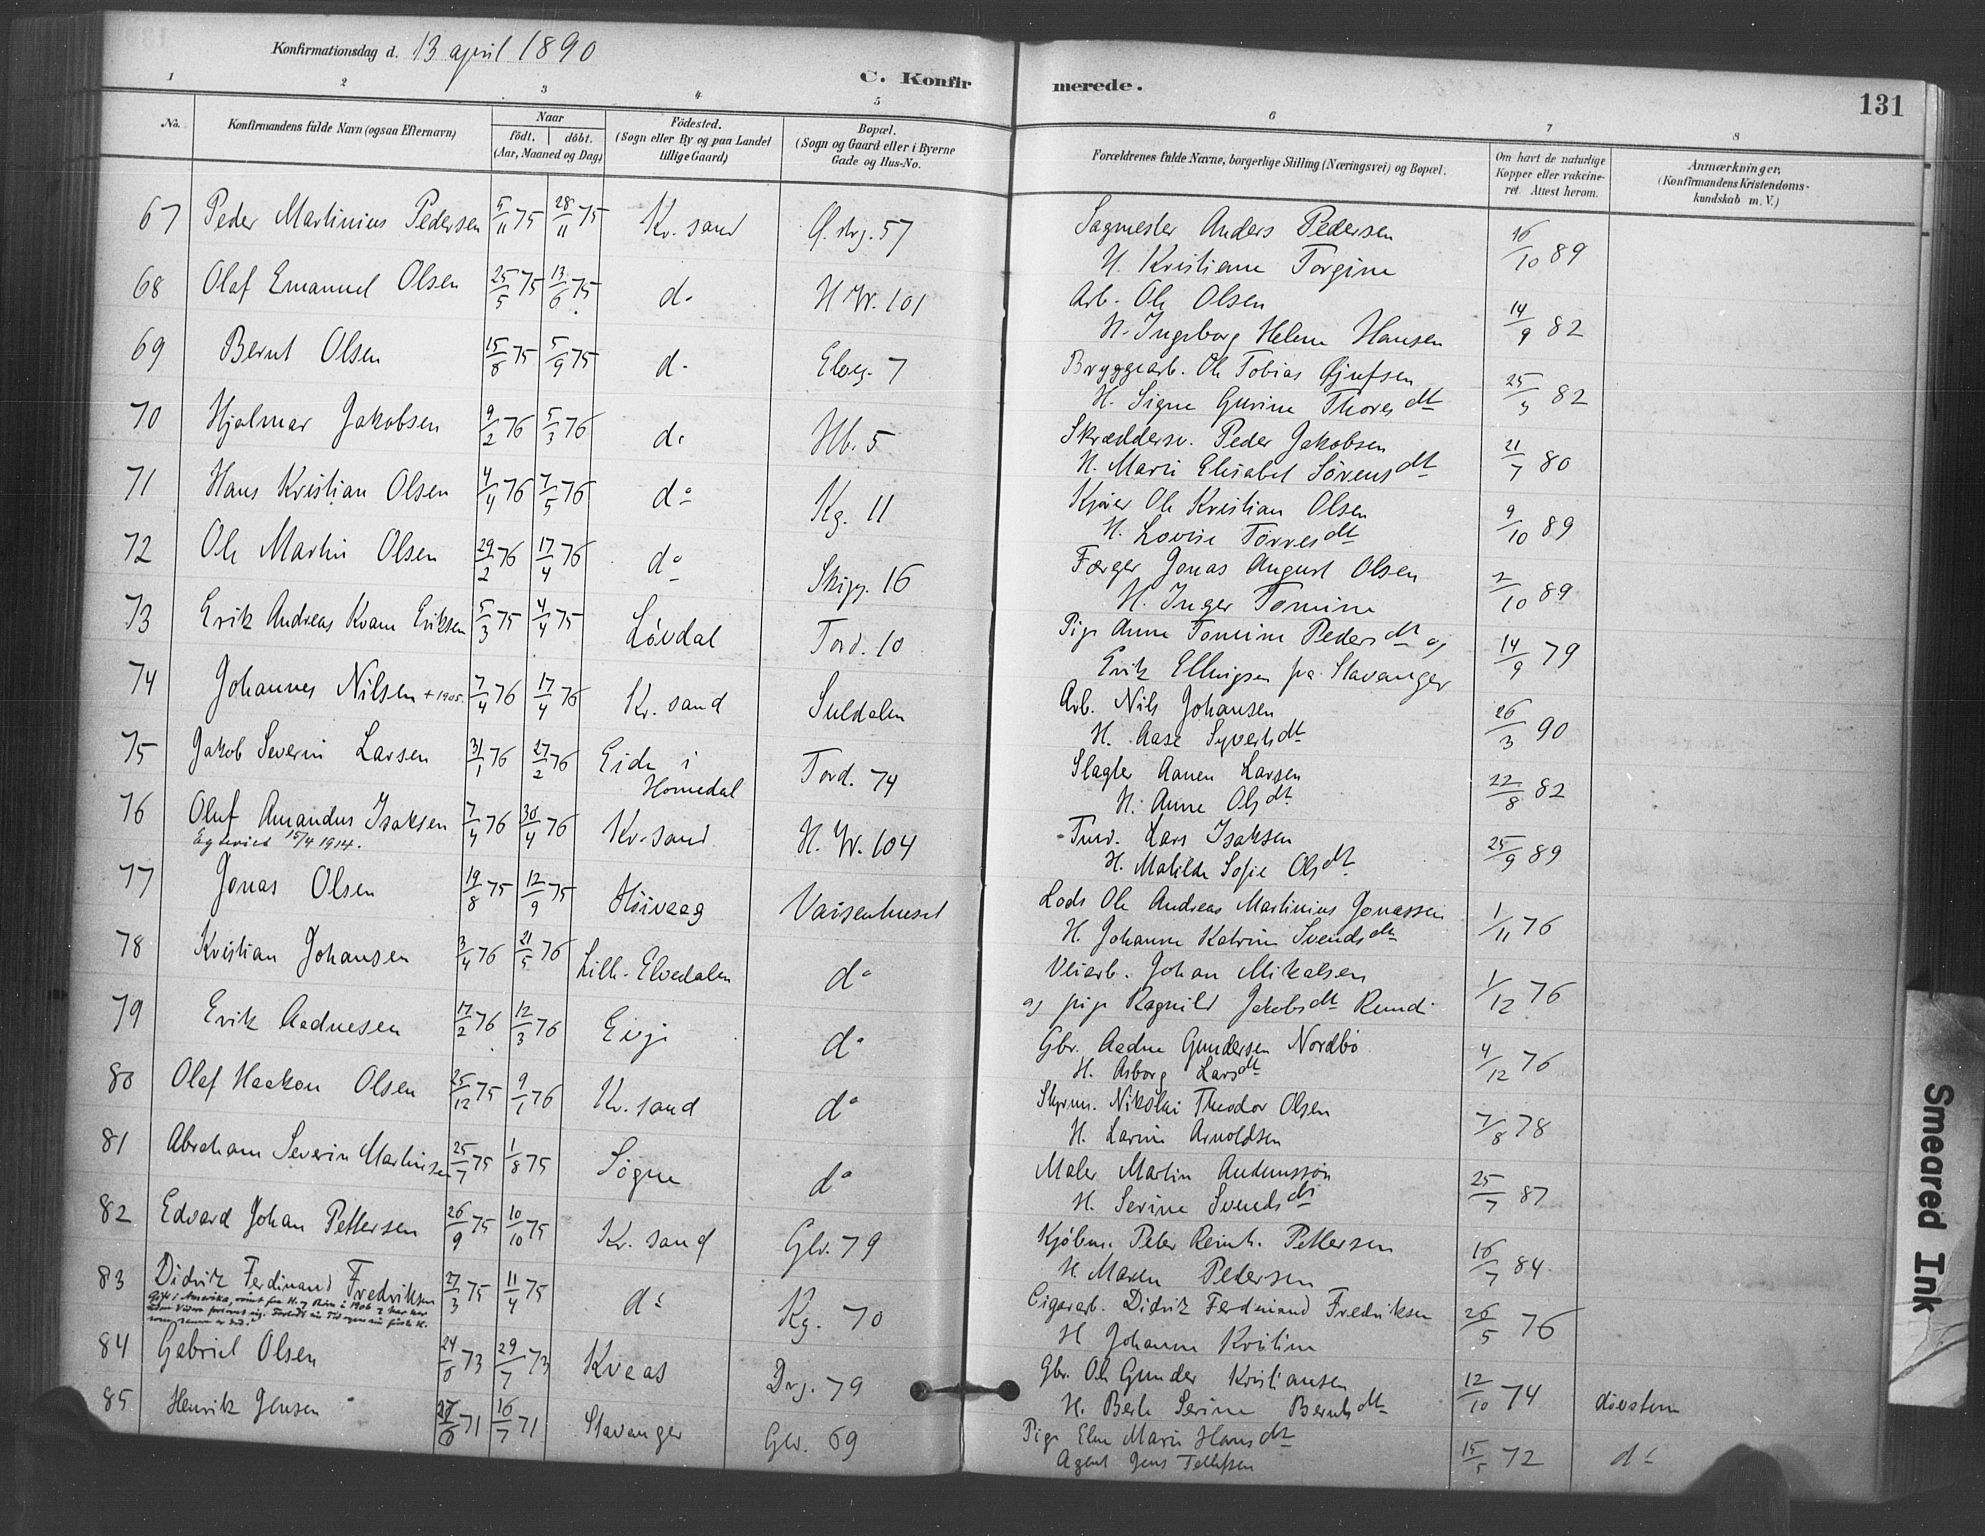 Konfirmationsdag d. 13 april 1890
C. Konfirmerede.
131
1 2 3 4 5 6 7 8
No.
Konfirmandens fulde Navn (ogsaa Efternavn)
Naar
födt. döbt.
(Aar, Maaned og Dag)
Födested.
(Sogn eller By og paa Landet
tillige Gaard)
Bopæl.
(Sogn og Gaard eller i Byerne
Gade og Hus-No.
Forældrenes fulde Navne, borgerlige Stilling (Næringsvei) og Bopæl.
Om havt de naturlige
Kopper eller vakcine-
ret. Attest herom.
Anmærkninger,
(Konfirmandens Kristendoms-
kundskab m. V.)
67 Peder Martinius Pedersen 5/11 75 28/11 75 Kr. sand Ø. strg. 57 Sagmester Anders Pedersen 16/10 89
H. Kristiane Torgine
68 Olaf Emanuel Olsen 25/5 75 13/6 75 do H. W. 101 Arb. Ole Olsen 14/9 82
H. Ingeborg Helene Hansen
69 Bernt Olsen 15/8 75 5/9 75 do Elveg. 7 Bryggearb. Ole Tobias Gjufsen 25/5 82
H. Signe Gurine Thoresdt
70 Hjalmar Jakobsen 9/2 76 5/3 76 do Hb. 5 Skrædders. Peder Jakobsen 21/7 80
H. Marie Elisabet Sørensdt
71 Hans Kristian Olsen 4/4 76 7/5 76 do Kg. 11 Kjører Ole Kristian Olsen 9/10 89
H. Lovise Torresdt
72 Ole Martin Olsen 29/2 76 17/4 76 do Skipp. 16 Farger Jonas August Olsen 2/10 89
H. Inger Tomine
73 Erik Andreas Kvam Eriksen 5/3 75 4/4 75 Løvdal Tord. 10 Pige Anne Tomine Pedersdt og 14/9 79
Erik Ellingsen fra Stavanger
74 Johannes Nilsen + 1905. 7/4 76 17/4 76 Kr. sand Suldalen Arb. Nils Johansen 26/3 90
H. Aase Syvertsdt
75 Jakob Severin Larsen 31/1 76 27/2 76 Eide i Tord. 74 Slagter Aanen Larsen 22/8 82
Homedal H. Anne Olsdt
76 Oluf Amandus Isaksen 7/4 76 30/4 76 Kr. sand H. W. 104 Lars Isaksen 25/9 89
15/4 1914. H. Matilde Sofie Olsdt
77 Jonas Olsen 19/8 75 12/9 75 Høivaag Vaisenhuset Lods Ole Andreas Martinius Jonassen 1/11 76
H. Johanne Katrine Svendsdt
78 Kristian Johansen 3/4 76 21/5 76 Lille-Elvedalen do Veiarb. Johan Mikalsen 1/12 76
og pige Ragnild Jakobsdt Rundi
79 Erik Aadnesen 17/2 76 12/3 76 Evje do Gbr. Aadne Gundersen Nordbø 4/12 76
H. Asborg Larsdt
80 Olaf Haakon Olsen 25/12 75 9/1 76 Kr. sand do Styrm. Nikolai Theodor Olsen 7/8 78
H. Larine Arnoldsen
81 Abraham Severin Martinsen 25/7 75 1/8 75 Søgne do Maler Martin Andersson 25/7 87
H. Serine Svendsdt
82 Edvard Johan Pettersen 26/9 75 10/10 75 Kr. sand Glv. 79 Kjøbm. Peter Reinh. Pettersen 16/7 84
H. Maren Pedersen
83 Didrik Ferdinand Fredriksen 27/3 75 11/4 75 do Kg. 70 Cigararb. Didrik Ferdinand Fredriksen 26/5 76
Gift i Amerika,
H Johanne Kristine
84 Gabriel Olsen 24/6 73 29/7 73 Kvaas Drg. 79 Gbr. Ole Gunder Kristiansen 12/10 74 døvstum
H. Berte Serine Berntsdt
85 Henrik Jensen 28/6 71 16/7 71 Stavanger Glv. 69 Pige Elen Marie Hansdt 15/5 72 do
Agent Jens Tellefsen
Smeared Ink